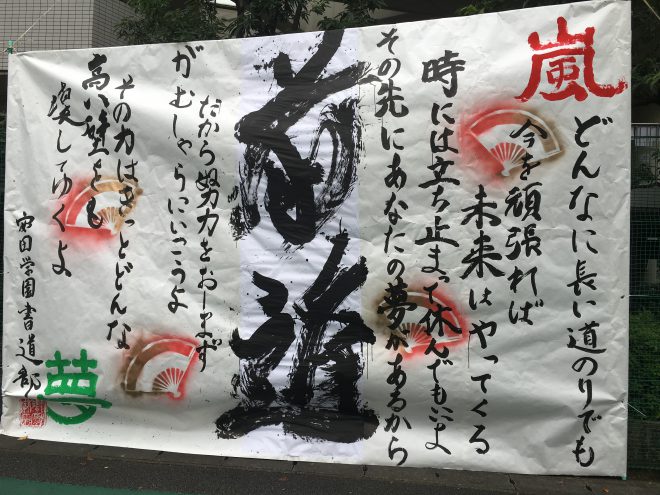 嵐
どんなに長い道のりでも
今を頑張れば
未来はやってくる
時には立ち止まって休んでもいいよ
その先にあなたの夢があるから
だから努力をおしまず
がむしゃらにいこうよ
その力はきっとどんな
高い壁をも
壊してゆくよ
安田学園書道部
夢